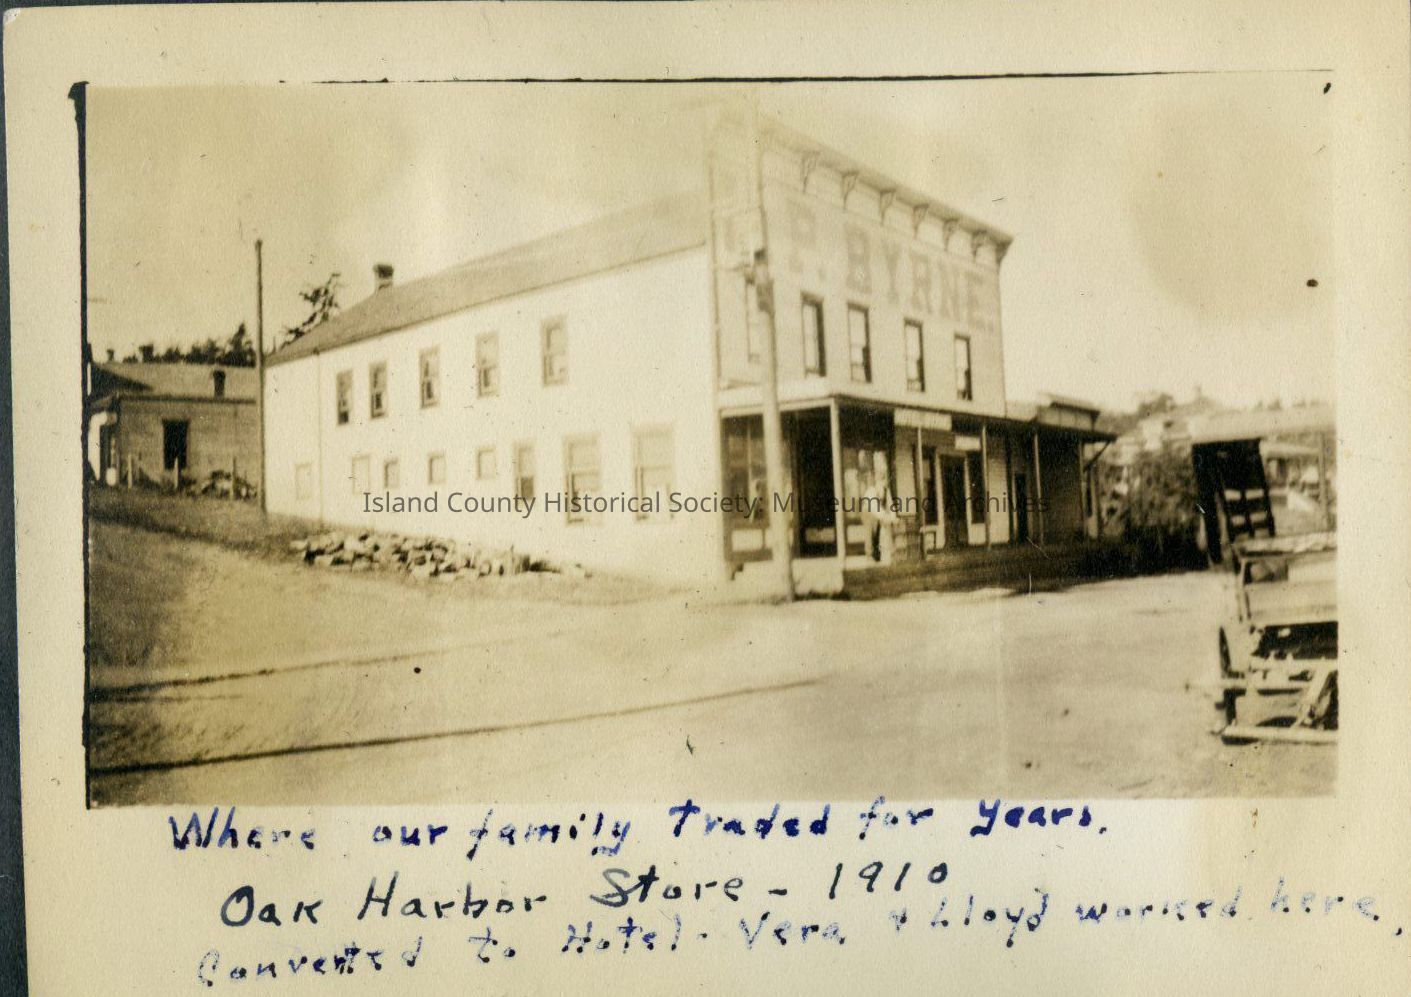 P. BYRNE.
Island County Historical Society; Museum and Archives
Where our family traded for years.
Oak Harbor Store - 1910
Converted to Hotel - Vera & Lloyd worked here.